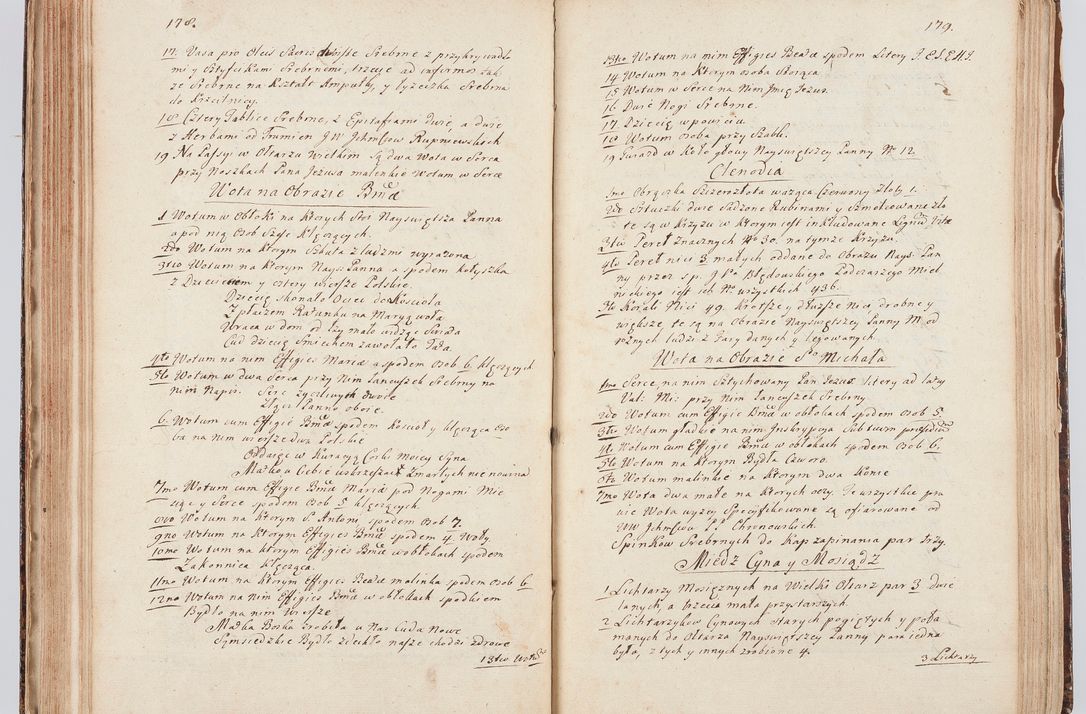 178.
17. Vasa pro Oleis Sacris dwoiste Srebrne z przykrywadła
mi y Sztyfcikami Srebrnemi, trzecie ad infirmos tak
że Srebrne na Kształt Ampułły, y łyżeczka Srebrna
do Krzcielnicy.
18 Cztery Tablice Srebrne, z Epitafiami dwie, a dwie
z Herbami od Trumien JW Jchmściow Rupniewskich
19 Na Passyi w Ołtarzu Wielkim są dwa Wota w Serca
przy Noszkach Pana Jezusa maleńkie Wotum w Serce
Wota na Obrazie Bmæ
1 Wotum w Obłoki na Ktorych Stoi Nayświętsza Panna
a pod nią Osob Sześć Klęczących.
2do Wotum na Ktorym Szkuta z ludzmi wyrażona
3tio Wotum na Ktorym Nayś: Panna a spodem Kołyszka
z Dziecięciem y cztery wiersze Polskie.
Dziecię Skonało Ociec do Kościoła
Z płaczem Ratunku na Maryą woła
Wraca w dom od łzy mało widząc Swiata
Cud dziecię Smiechem zawołało Tata.
4to Wotum na nim Effigies Mariæ a spodem Osob 6. klęczących
5to Wotum w dwa Serca przy Nim Łancuszek Srebrny na
nim Napis. Serc życzliwych dwoie
Złącz Panno oboie.
6. Wotum cum Effigie Bmæ spodem Kościoł y klęcząca Oso
ba na nim wiersze dwa Polskie
Oddaię w Kuracyą Corki moiey Syna
Matko u Ciebie wskrzeszać Zmarłych nie nowina
7mo Wotum cum Effigie Bmæ Mariæ pod Nogami Mie
siąc y Serce spodem Osob 5 klęczących.
8vo Wotum na Ktorym S. Antoni spodem Osob 7.
9no Wotum na Ktorym Effigies Bmæ spodem 4. Woły.
10mo Wotum na ktorym Effigies Bmæ w obłokach spodem
Zakonnica Klęcząca.
11mo Wotum na Ktorym Effigies Beatæ malinka spodem Osob 6.
12mo Wotum na Nim Effigies Bmæ w obłokach spodkiem
Bydło na nim Wiersze
Matka Boska zrobiła u Nas Cuda Nowe
Sąmsiedzkie Bydło zdechło nasze chodzi zdrowe
13tio Wotū
179.
13tio Wotum na nim Effigies Beatæ spodem Litery I. E. S. E. H. I.
14 Wotum na Ktorym osoba Stoiąca
15 Wotum w Serce na Nim Jmię Jezus.
16 Dwie Nogi Srebrne.
17. Dziecię w powiciu.
18 Wotum Osoba przy Szabli.
19 Gwiazd w Koło głowy Nayświętszey Panny No 12
Clenodia
1mo Obrączka Szczerozłota ważąca Czerwony Złoty 1.
2do Sztuczki dwie Sadzone Rubinami y Szmelcowane zło
te są w Krzyżu w Ktorym iest inkludowane Lignū Vitæ
3tio Pereł Znacznych No 30. na tymże Krzyżu.
4to Pereł nici 3 małych oddane do Obrazu Nayś: Pan
ny przez s. p. J Po Błędowskiego Podczaszego Miel
nickiego iest ich No wszystkich 436.
5to Korali Nici 49. Krotsze y dłuższe Nia drobne y
większe te są na Obrazie Nayświętszey Panny M. od
rożnych ludzi z Pary danych y legowanych.
Wota na Obrazie So Michała
1mo Serce, na nim Sztychowany Pan Jezus Litery ad latus
Vol: Mi: przy Nim Łancuszek Srebrny
2do Wotum cum Effigie Bmæ w obłokach spodem Osob 5.
3tio Wotum gładkie na nim Inskrypcya Sub tuum præsidiū
4to Wotum cum Effigie Bmæ w obłokach spodem Osob 6.
5to Wotum na Ktorym Bydła Czworo.
6to Wotum malinkie na Ktorym dwa Konie
7mo Wota dwa małe na Ktorych oczy. Te wszystkie pra
wie Wota wyżey Specyfikowane są ofiarowane od
WW Jchmściow PP Chronowskich.
Spinkow Srebrnych do Kap zapinania par Trzy.
Miedz Cyna y Mosiądz
1 Lichtarzy Mosiężnych na Wielki Ołtarz par 3 dwie
lanych, a trzecia mała przystarszych.
2 Lichtarzykow Cynowych starych pogiętych y poła
manych do Ołtarza Nayświętszey Panny para iedna
była, z tych y innych zrobione 4.
3 Lichtarzy